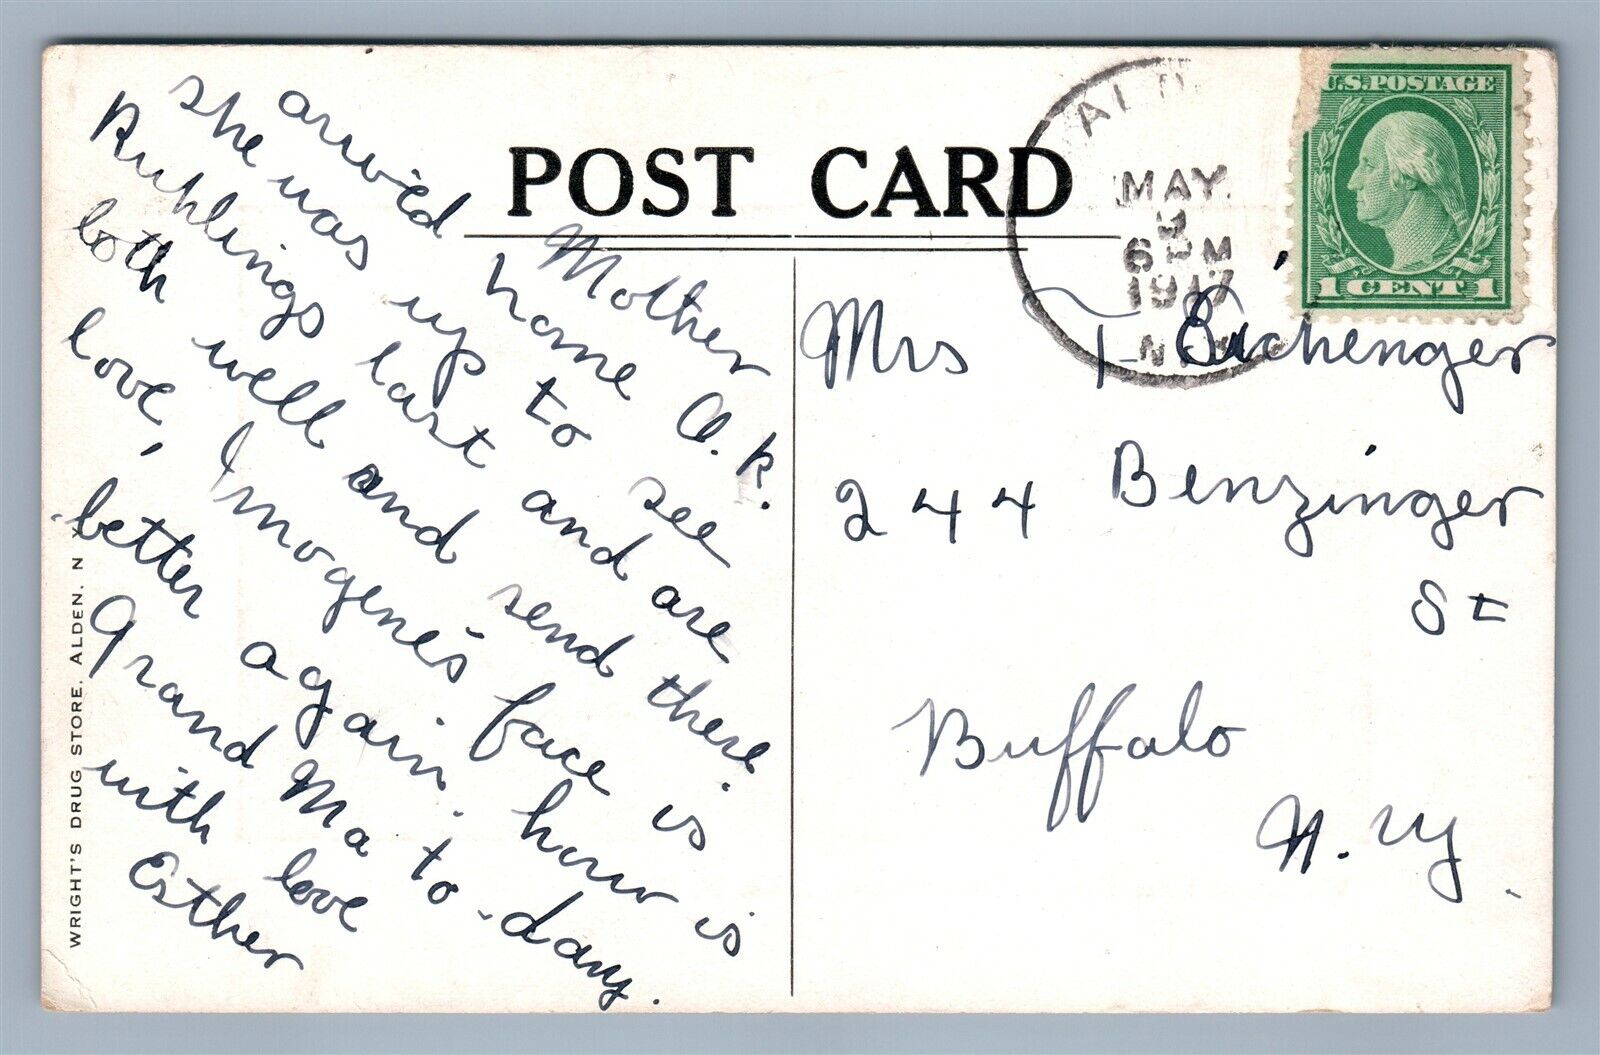 POST CARD
Mother
arrived home O.K.
she was up to see
Ruhlings last and are
both well and send there
love, Imogene's face is
better again. how is
Grand Ma to-day.
with love
Esther
WRIGHT'S DRUG STORE, ALDEN, N Y
ALD
MAY
3
6 PM
1917
N.Y.
U.S. POSTAGE
1 CENT 1
Mrs T- Eichenger
244 Benzinger
St
Buffalo
N. Y.